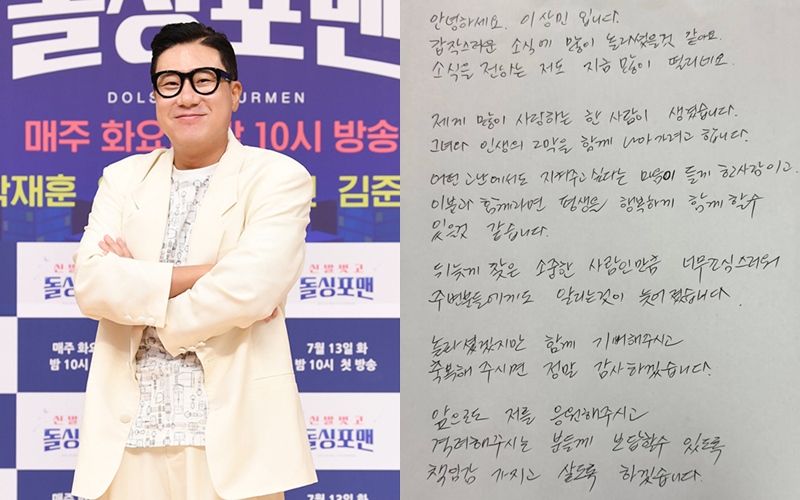 돌싱포맨
DOLS
URMEN
매주 화요
밤 10시 방송
박재훈
김준
신발벗고
돌싱포맨
매주 화요
밤 10시
7월 13일 화
밤 10시 첫 방송
신발벗고
돌싱포맨
7월 13일 화
안녕하세요. 이상민 입니다.
갑작스러운 소식에 많이 놀라셨을것 같아요.
소식을 전하는 저도 지금 많이 떨리네요.
제게 많이 사랑하는 한 사람이 생겼습니다.
그녀와 인생의 2막을 함께 나아가려고 합니다.
어떤 고난에서도 지켜주고 싶다는 마음이 들게 한사람이고.
이분과 함께라면 평생을 행복하게 함께 할수
있을것 같습니다.
뒤늦게 찾은 소중한 사람인만큼 너무조심스러워
주변분들에게도 알리는것이 늦어졌습니다.
놀라셨겠지만 함께 기뻐해주시고
축복해 주시면 정말 감사하겠습니다.
앞으로도 저를 응원해주시고
격려해주시는 분들께 보답할수 있도록
책임감 가지고 살도록 하겠습니다.